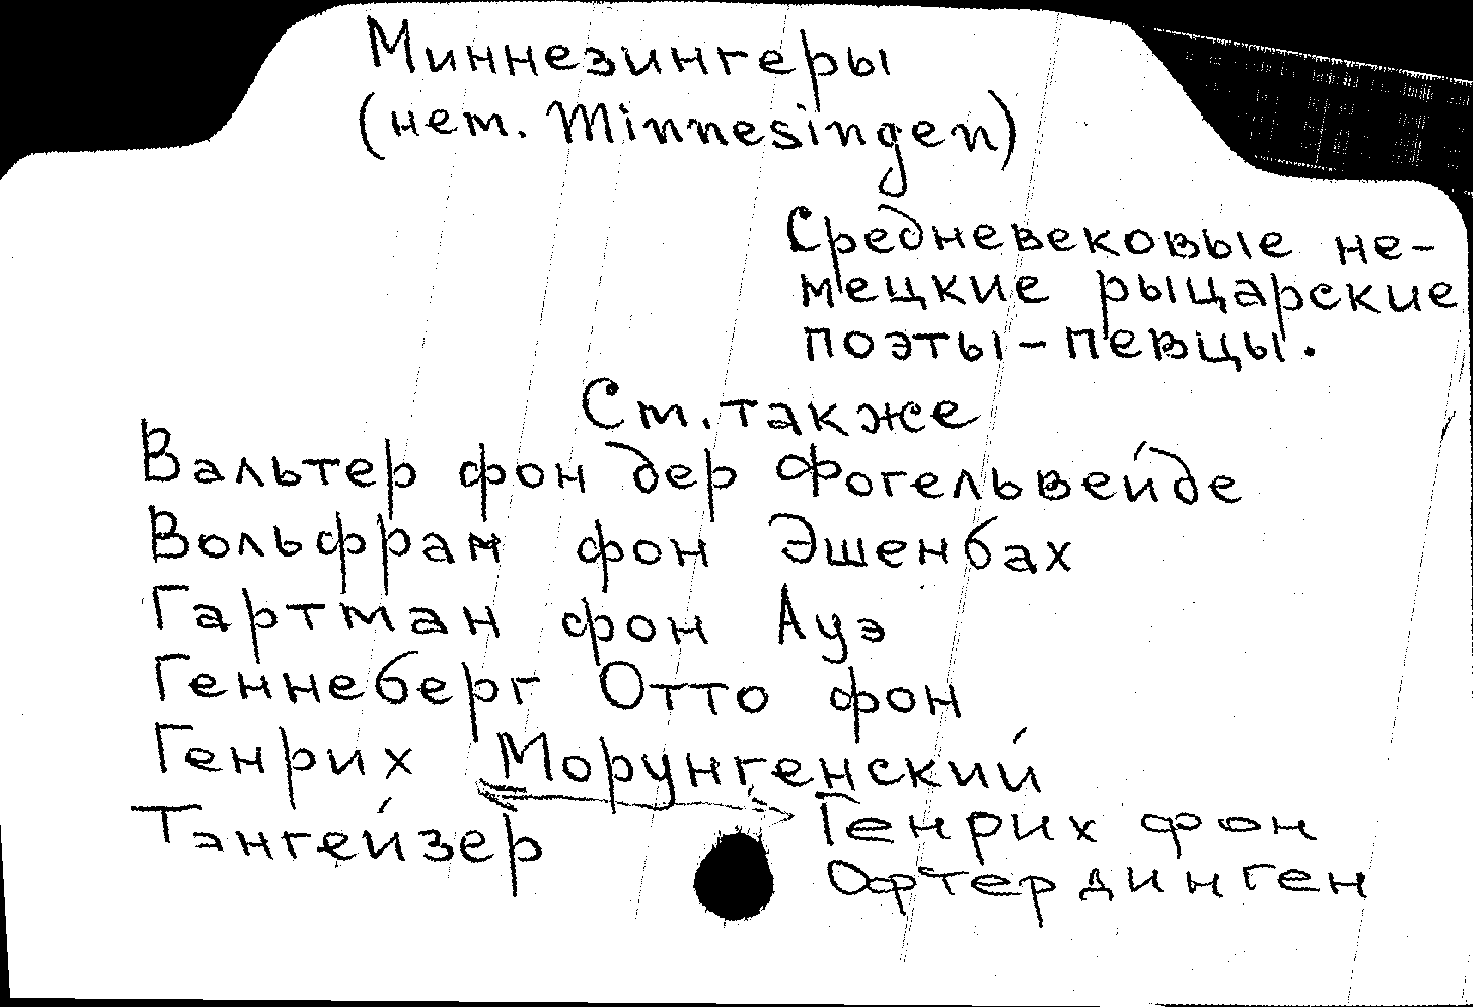 Миннезингеры
(нем. Minnesingen)
Средневековые не-
мецкие рыцарские
поэты-певцы.
См. также
Вальтер фон дер Фогельвейде
Вольфрам фон Эшенбах
Гартман фон Ауэ
Геннеберг Отто фон
Генрих Морунгенский
Тангейзер
Генрих фон
Офтердинген